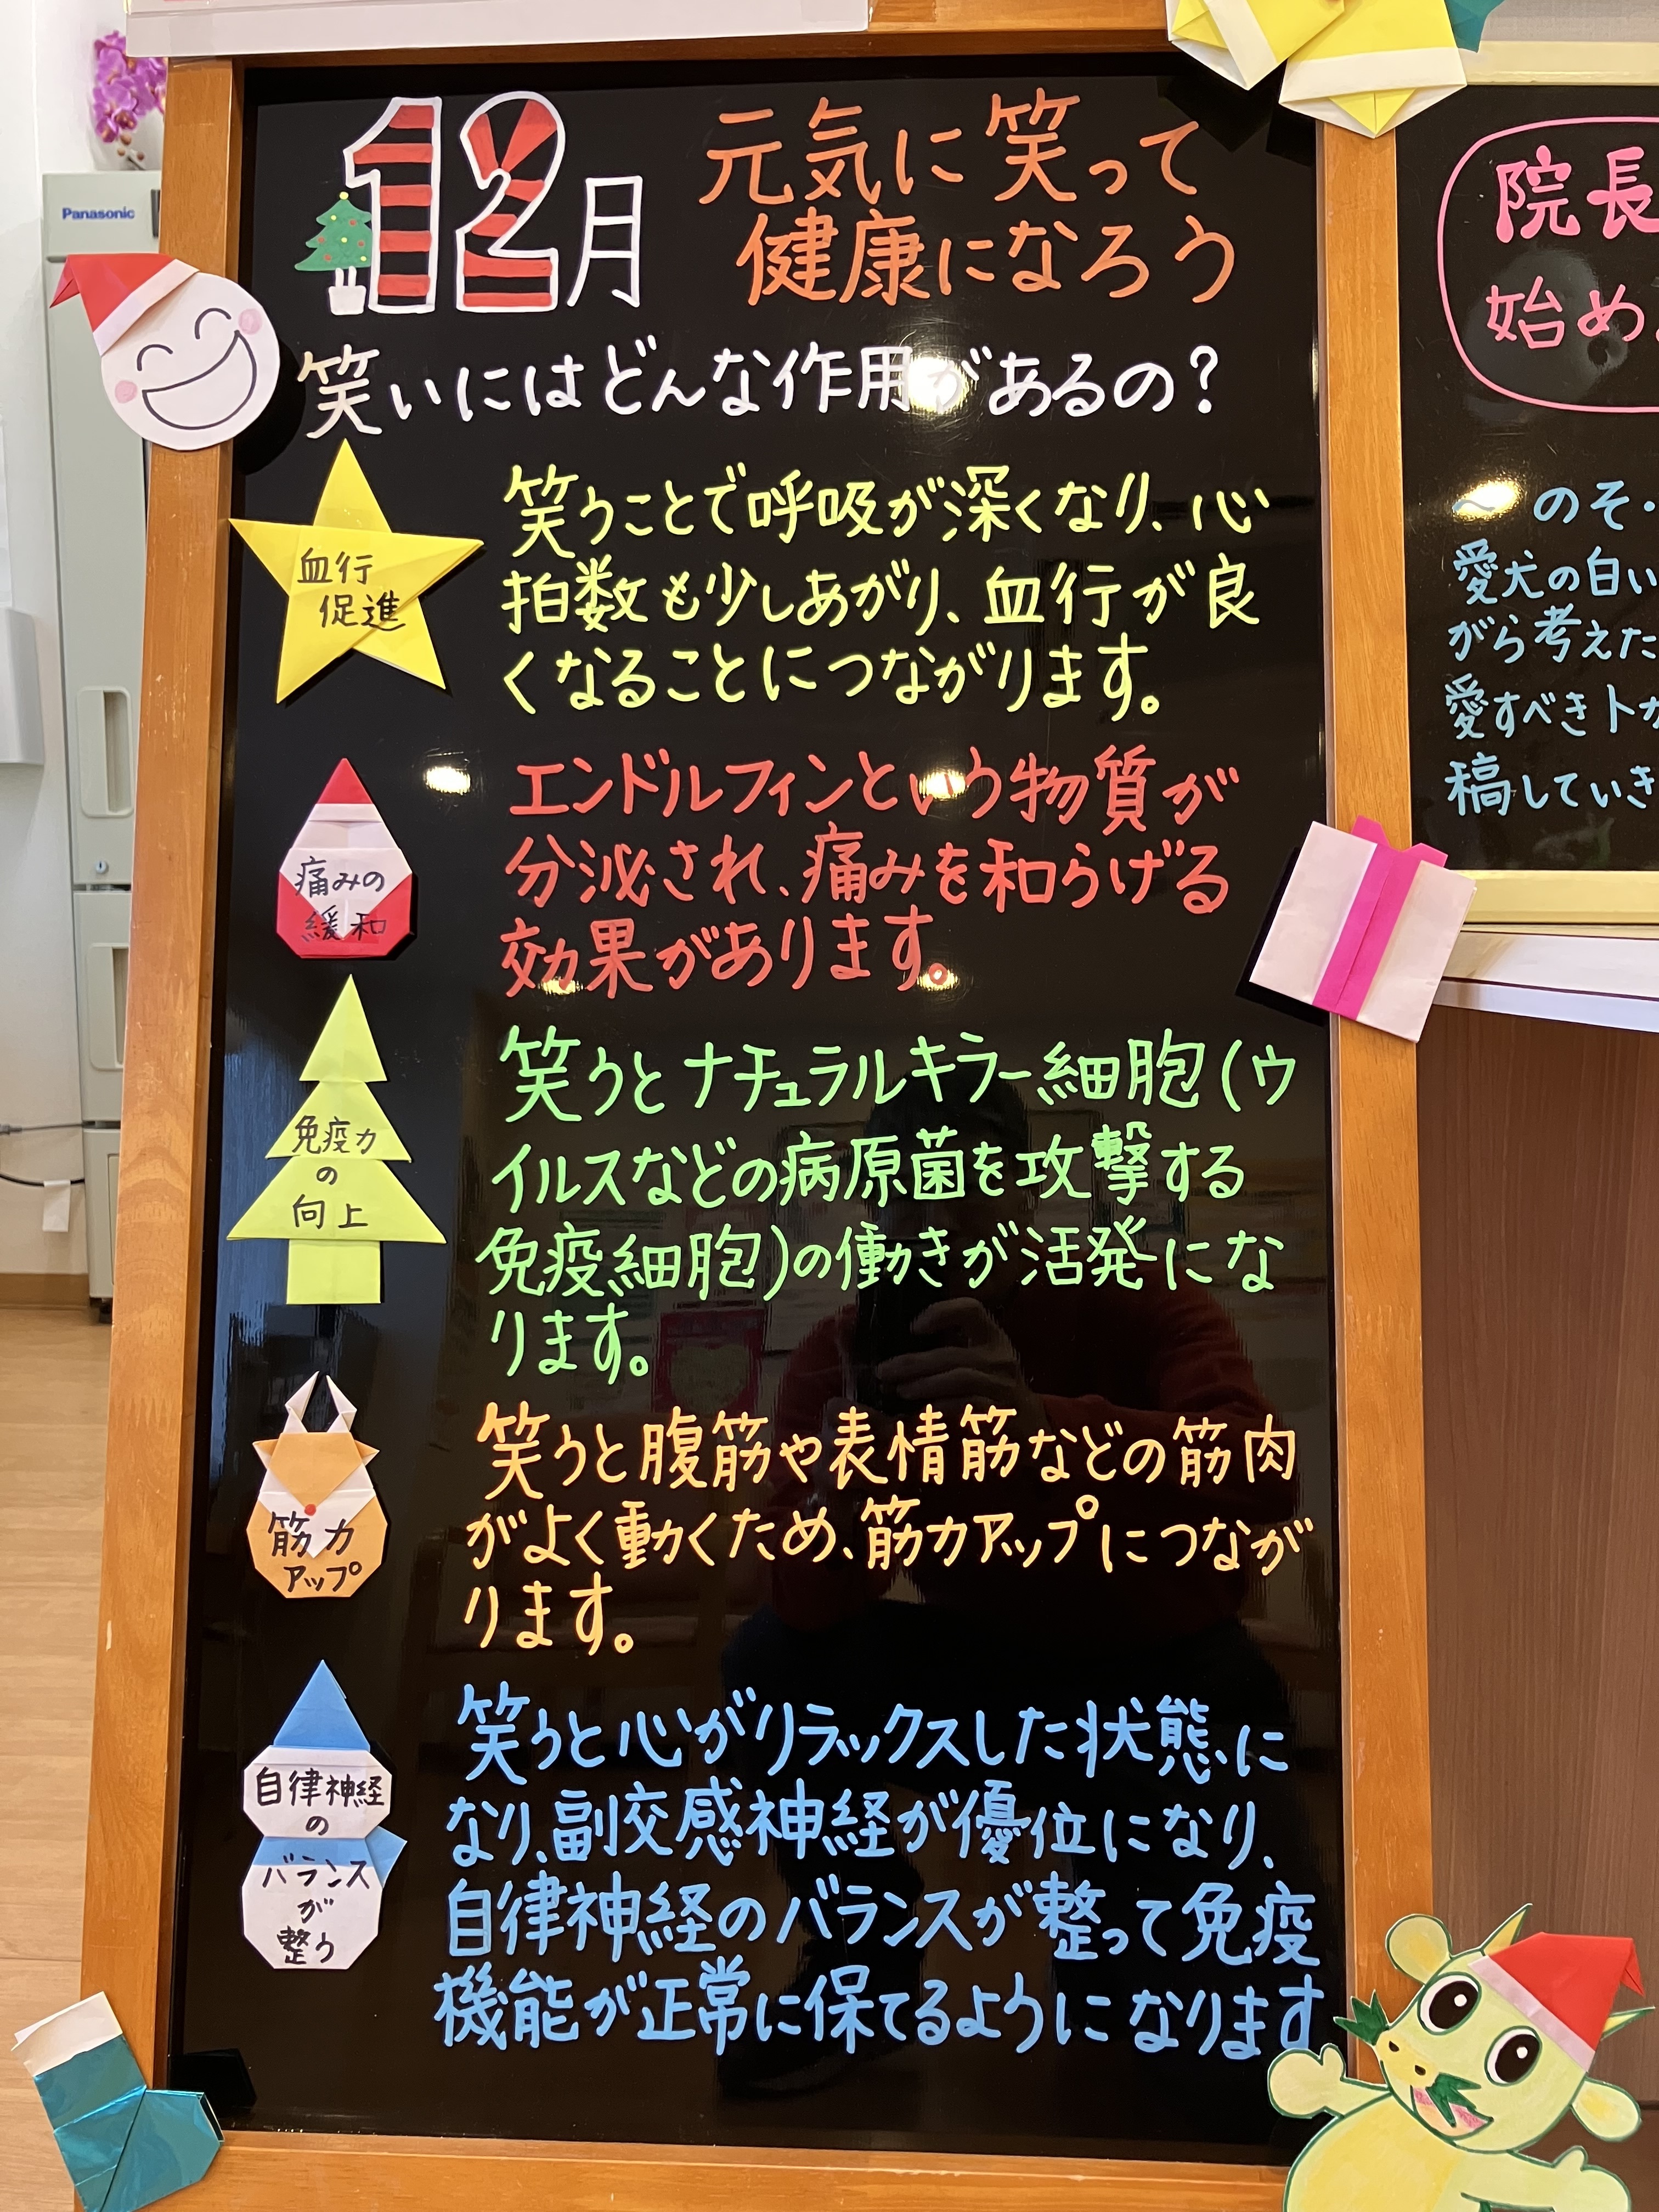 Panasonic
12月
元気に笑って
健康になろう
笑いにはどんな作用があるの?
血行
促進
笑うことで呼吸が深くなり、心
拍数も少しあがり、血行が良
くなることにつながります。
痛みの
緩和
エンドルフィンという物質が
分泌され、痛みを和らげる
効果があります。
免疫力
の
向上
笑うとナチュラルキラー細胞(ウ
イルスなどの病原菌を攻撃する
免疫細胞)の働きが活発にな
ります。
筋力
アップ
笑うと腹筋や表情筋などの筋肉
がよく動くため、筋力アップにつなが
ります。
自律神経
の
バランス
が
整う
笑うと心がリラックスした状態に
なり、副交感神経が優位になり、
自律神経のバランスが整って免疫
機能が正常に保てるようになります
院長
始め
〜 のそ
愛犬の白い
がら考えた
愛すべきト
稿していき